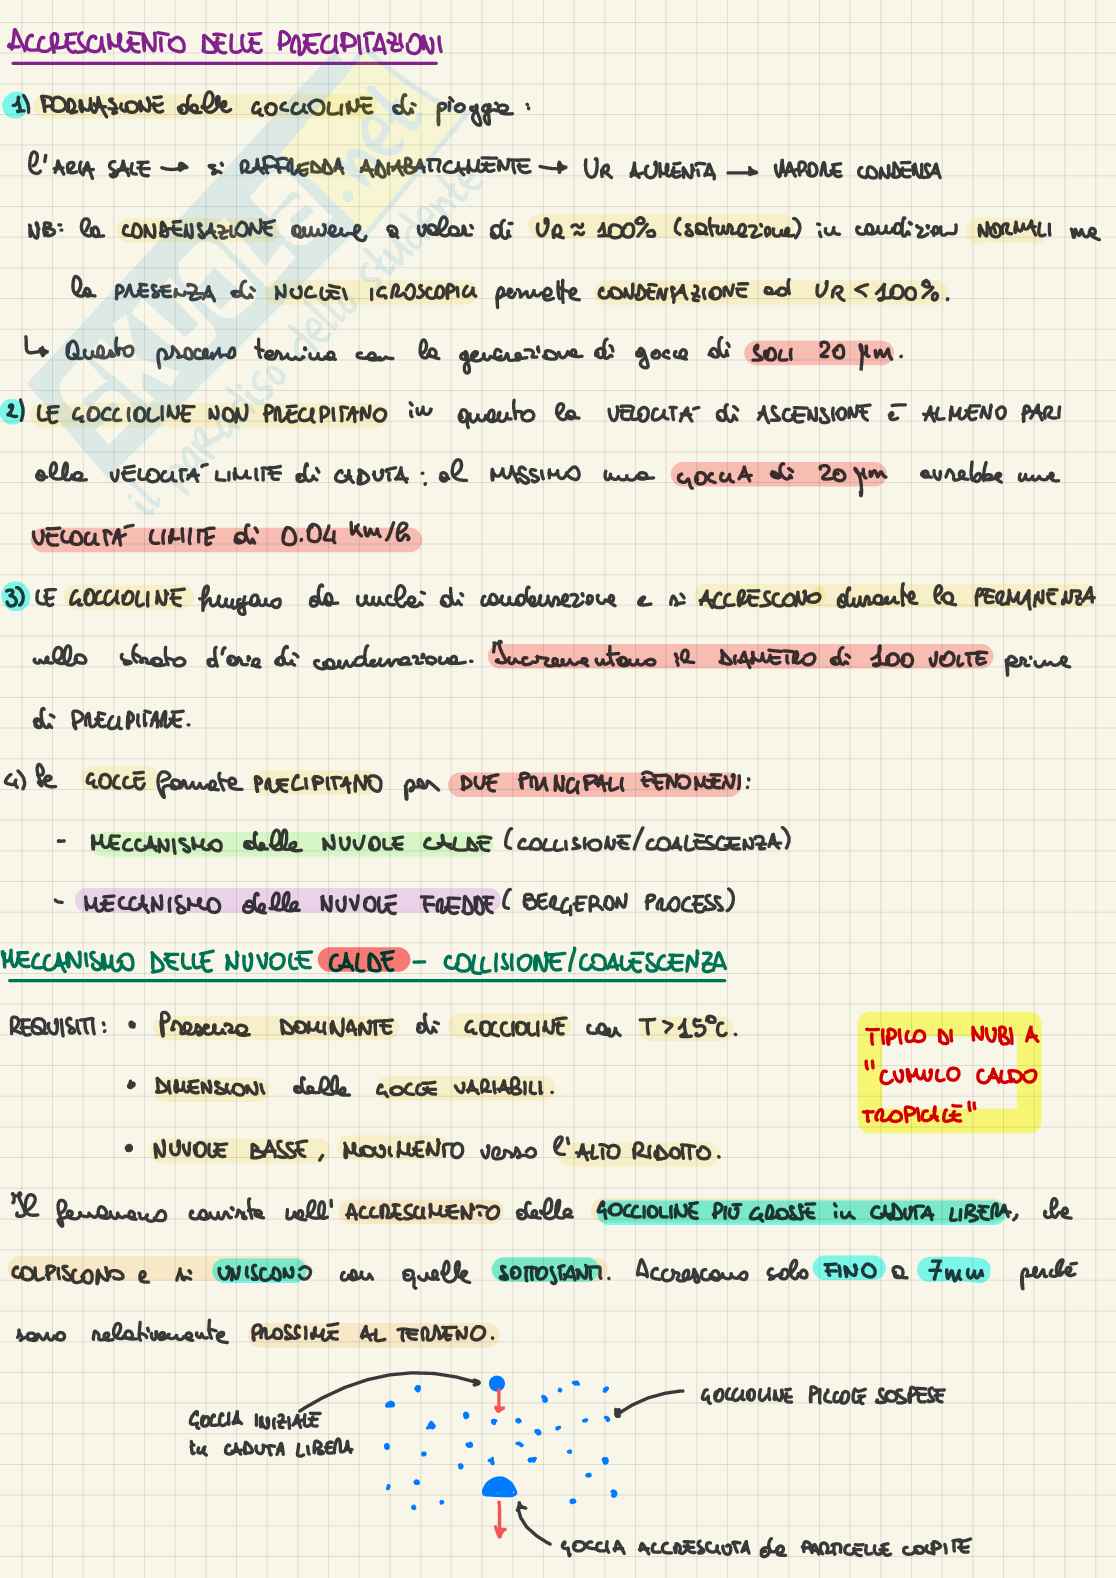 ACCRESCIMENTO DELLE PRECIPITAZIONI
1) FORMAZIONE delle GOCCIOLINE di pioggia :
l'ARIA SALE → si RAFFREDDA ADIABATICAMENTE → UR AUMENTA → VAPORE CONDENSA
NB: la CONDENSAZIONE avviene a valori di UR ≈ 100% (saturazione) in condizioni NORMALI ma
la PRESENZA di NUCLEI IGROSCOPICI permette CONDENSAZIONE ad UR < 100%.
↳ Questo processo termina con la generazione di gocce di SOLI 20 μm.
2) LE GOCCIOLINE NON PRECIPITANO in quanto la VELOCITÀ di ASCENSIONE È ALMENO PARI
alla VELOCITÀ LIMITE di CADUTA : al MASSIMO una GOCCIA di 20 μm avrebbe una
VELOCITÀ LIMITE di 0.04 Km/h
3) LE GOCCIOLINE fungono da nuclei di condensazione e si ACCRESCONO durante la PERMANENZA
nello strato d'aria di condensazione. Incrementano il DIAMETRO di 100 VOLTE prima
di PRECIPITARE.
4) le GOCCE formate PRECIPITANO per DUE PRINCIPALI FENOMENI:
- MECCANISMO delle NUVOLE CALDE (COLLISIONE/COALESCENZA)
- MECCANISMO delle NUVOLE FREDDE (BERGERON PROCESS)
MECCANISMO DELLE NUVOLE CALDE - COLLISIONE/COALESCENZA
REQUISITI: • Presenza DOMINANTE di GOCCIOLINE con T>15°C.
• DIMENSIONI delle GOCCE VARIABILI.
• NUVOLE BASSE, MOVIMENTO verso l'ALTO RIDOTTO.
TIPICO DI NUBI A
"CUMULO CALDO
TROPICALE"
Il fenomeno consiste nell'ACCRESCIMENTO delle GOCCIOLINE PIÙ GROSSE in CADUTA LIBERA, che
COLPISCONO e si UNISCONO con quelle SOTTOSTANTI. Accrescono solo FINO a 7mm perché
sono relativamente PROSSIME AL TERRENO.
GOCCIA INIZIALE
in CADUTA LIBERA
GOCCIOLINE PICCOLE SOSPESE
GOCCIA ACCRESCIUTA da PARTICELLE COLPITE
SKUOLA.net
il paradiso dello studente